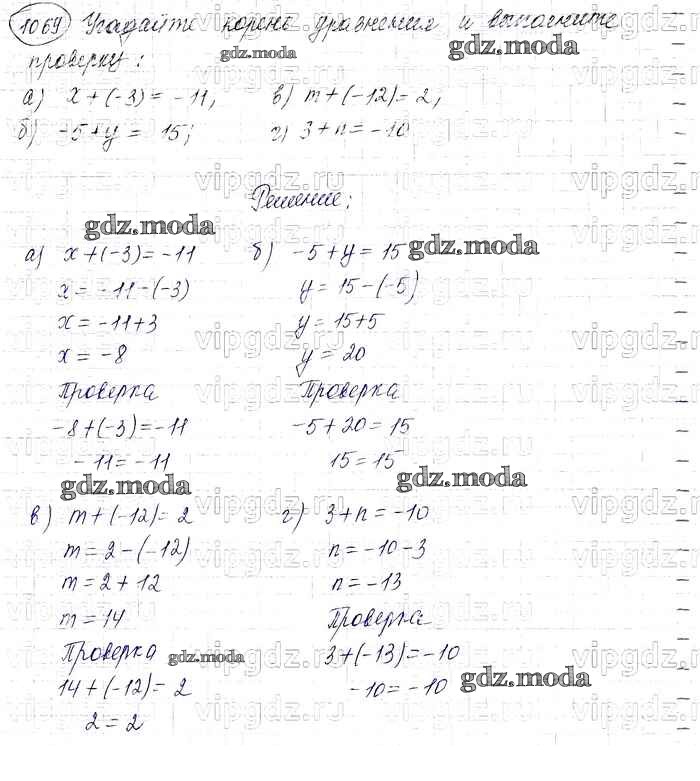 1069 Угадайте корень уравнения и выполните
проверку:
а) x + (-3) = -11,   в) m + (-12) = 2,
б) -5 + y = 15;   г) 3 + n = -10
Решение:
а) x + (-3) = -11
x = -11 - (-3)
x = -11 + 3
x = -8
Проверка
-8 + (-3) = -11
-11 = -11
б) -5 + y = 15
y = 15 - (-5)
y = 15 + 5
y = 20
Проверка
-5 + 20 = 15
15 = 15
в) m + (-12) = 2
m = 2 - (-12)
m = 2 + 12
m = 14
Проверка
14 + (-12) = 2
2 = 2
г) 3 + n = -10
n = -10 - 3
n = -13
Проверка
3 + (-13) = -10
-10 = -10
gdz.moda
gdz.moda
gdz.moda
gdz.moda
gdz.moda
gdz.moda
gdz.moda
gdz.moda
vipgdz.ru